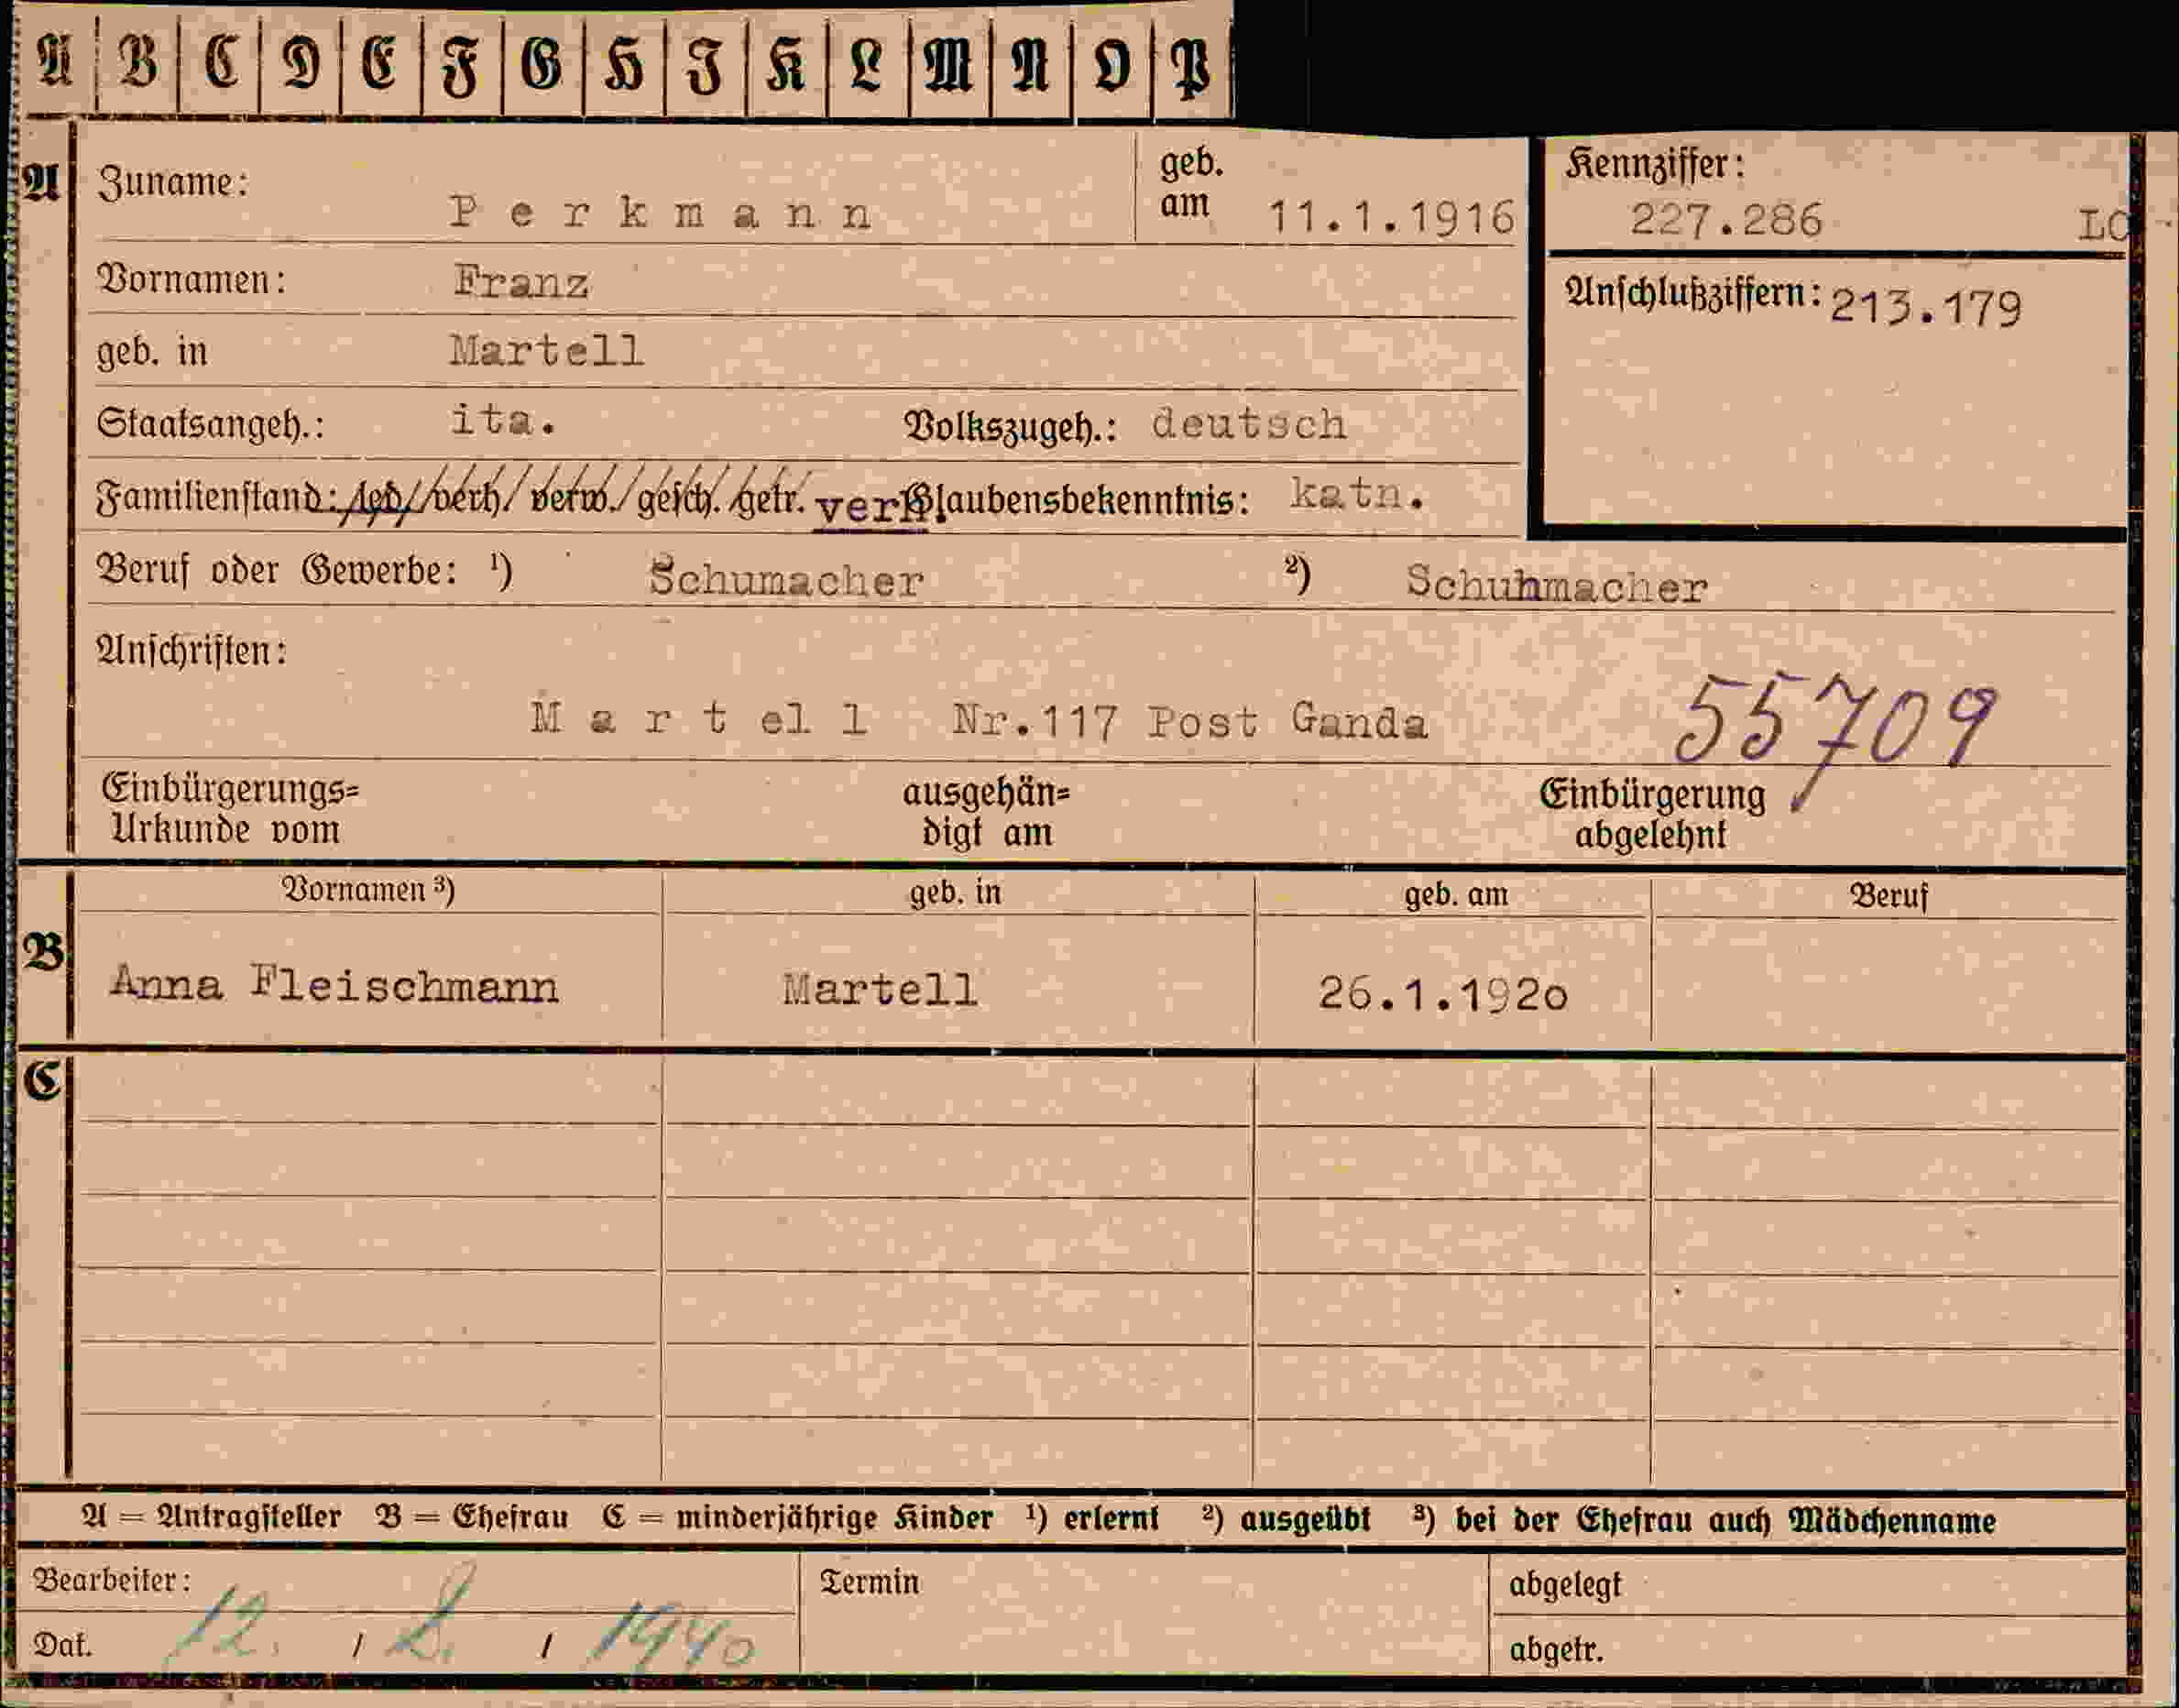 A B C D E F G H I K L M N O P
A Zuname: Perkmann geb. am 11.1.1916
Kennziffer: 227.286 LO
Vornamen: Franz
Anschlußziffern: 213.179
geb. in Martell
Staatsangeh.: ita. Volkszugeh.: deutsch
Familienstand: led/verh/verw./gesch./getr. verh Glaubensbekenntnis: kath.
Beruf oder Gewerbe: ¹) Schumacher ²) Schuhmacher
Anschriften:
Martell Nr.117 Post Ganda 55709
Einbürgerungs= ausgehän= Einbürgerung
Urkunde vom digt am abgelehnt
Vornamen ³) geb. in geb. am Beruf
B Anna Fleischmann Martell 26.1.1920
C
A = Antragsteller B = Ehefrau C = minderjährige Kinder ¹) erlernt ²) ausgeübt ³) bei der Ehefrau auch Mädchenname
Bearbeiter: Termin abgelegt
Dat. 12. / / 1940 abgetr.